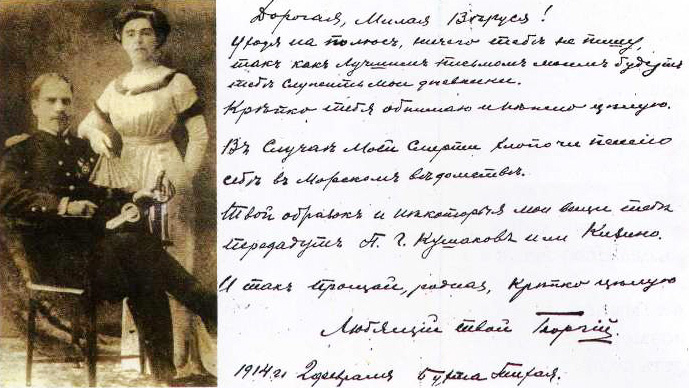 Дорогая, Милая Вѣруся!
Уходя на полюсъ, ничего тебѣ не пишу,
такъ какъ Лучшимъ письмомъ моимъ будутъ
тебѣ Служить мои дневники.
Крѣпко тебя обнимаю и нѣжно цѣлую.
Въ Случаѣ Моей Смерти хлопочи пенсію
себѣ въ Морскомъ вѣдомствѣ.
Твой образокъ и нѣкоторыя мои вещи тебѣ
передадутъ П. Г. Кушаковъ или Кизино.
И такъ прощай, родная, Крѣпко цѣлую
Любящій твой Георгій.
1914 г. 2 февраля Бухта Тихая.